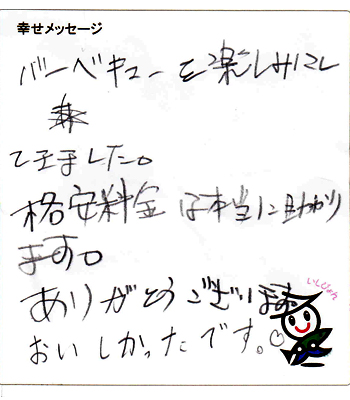 幸せメッセージ
バーベキューを楽しみにし
て来ました。
格安料金は本当に助かり
ます。
ありがとうございます
おいしかったです。